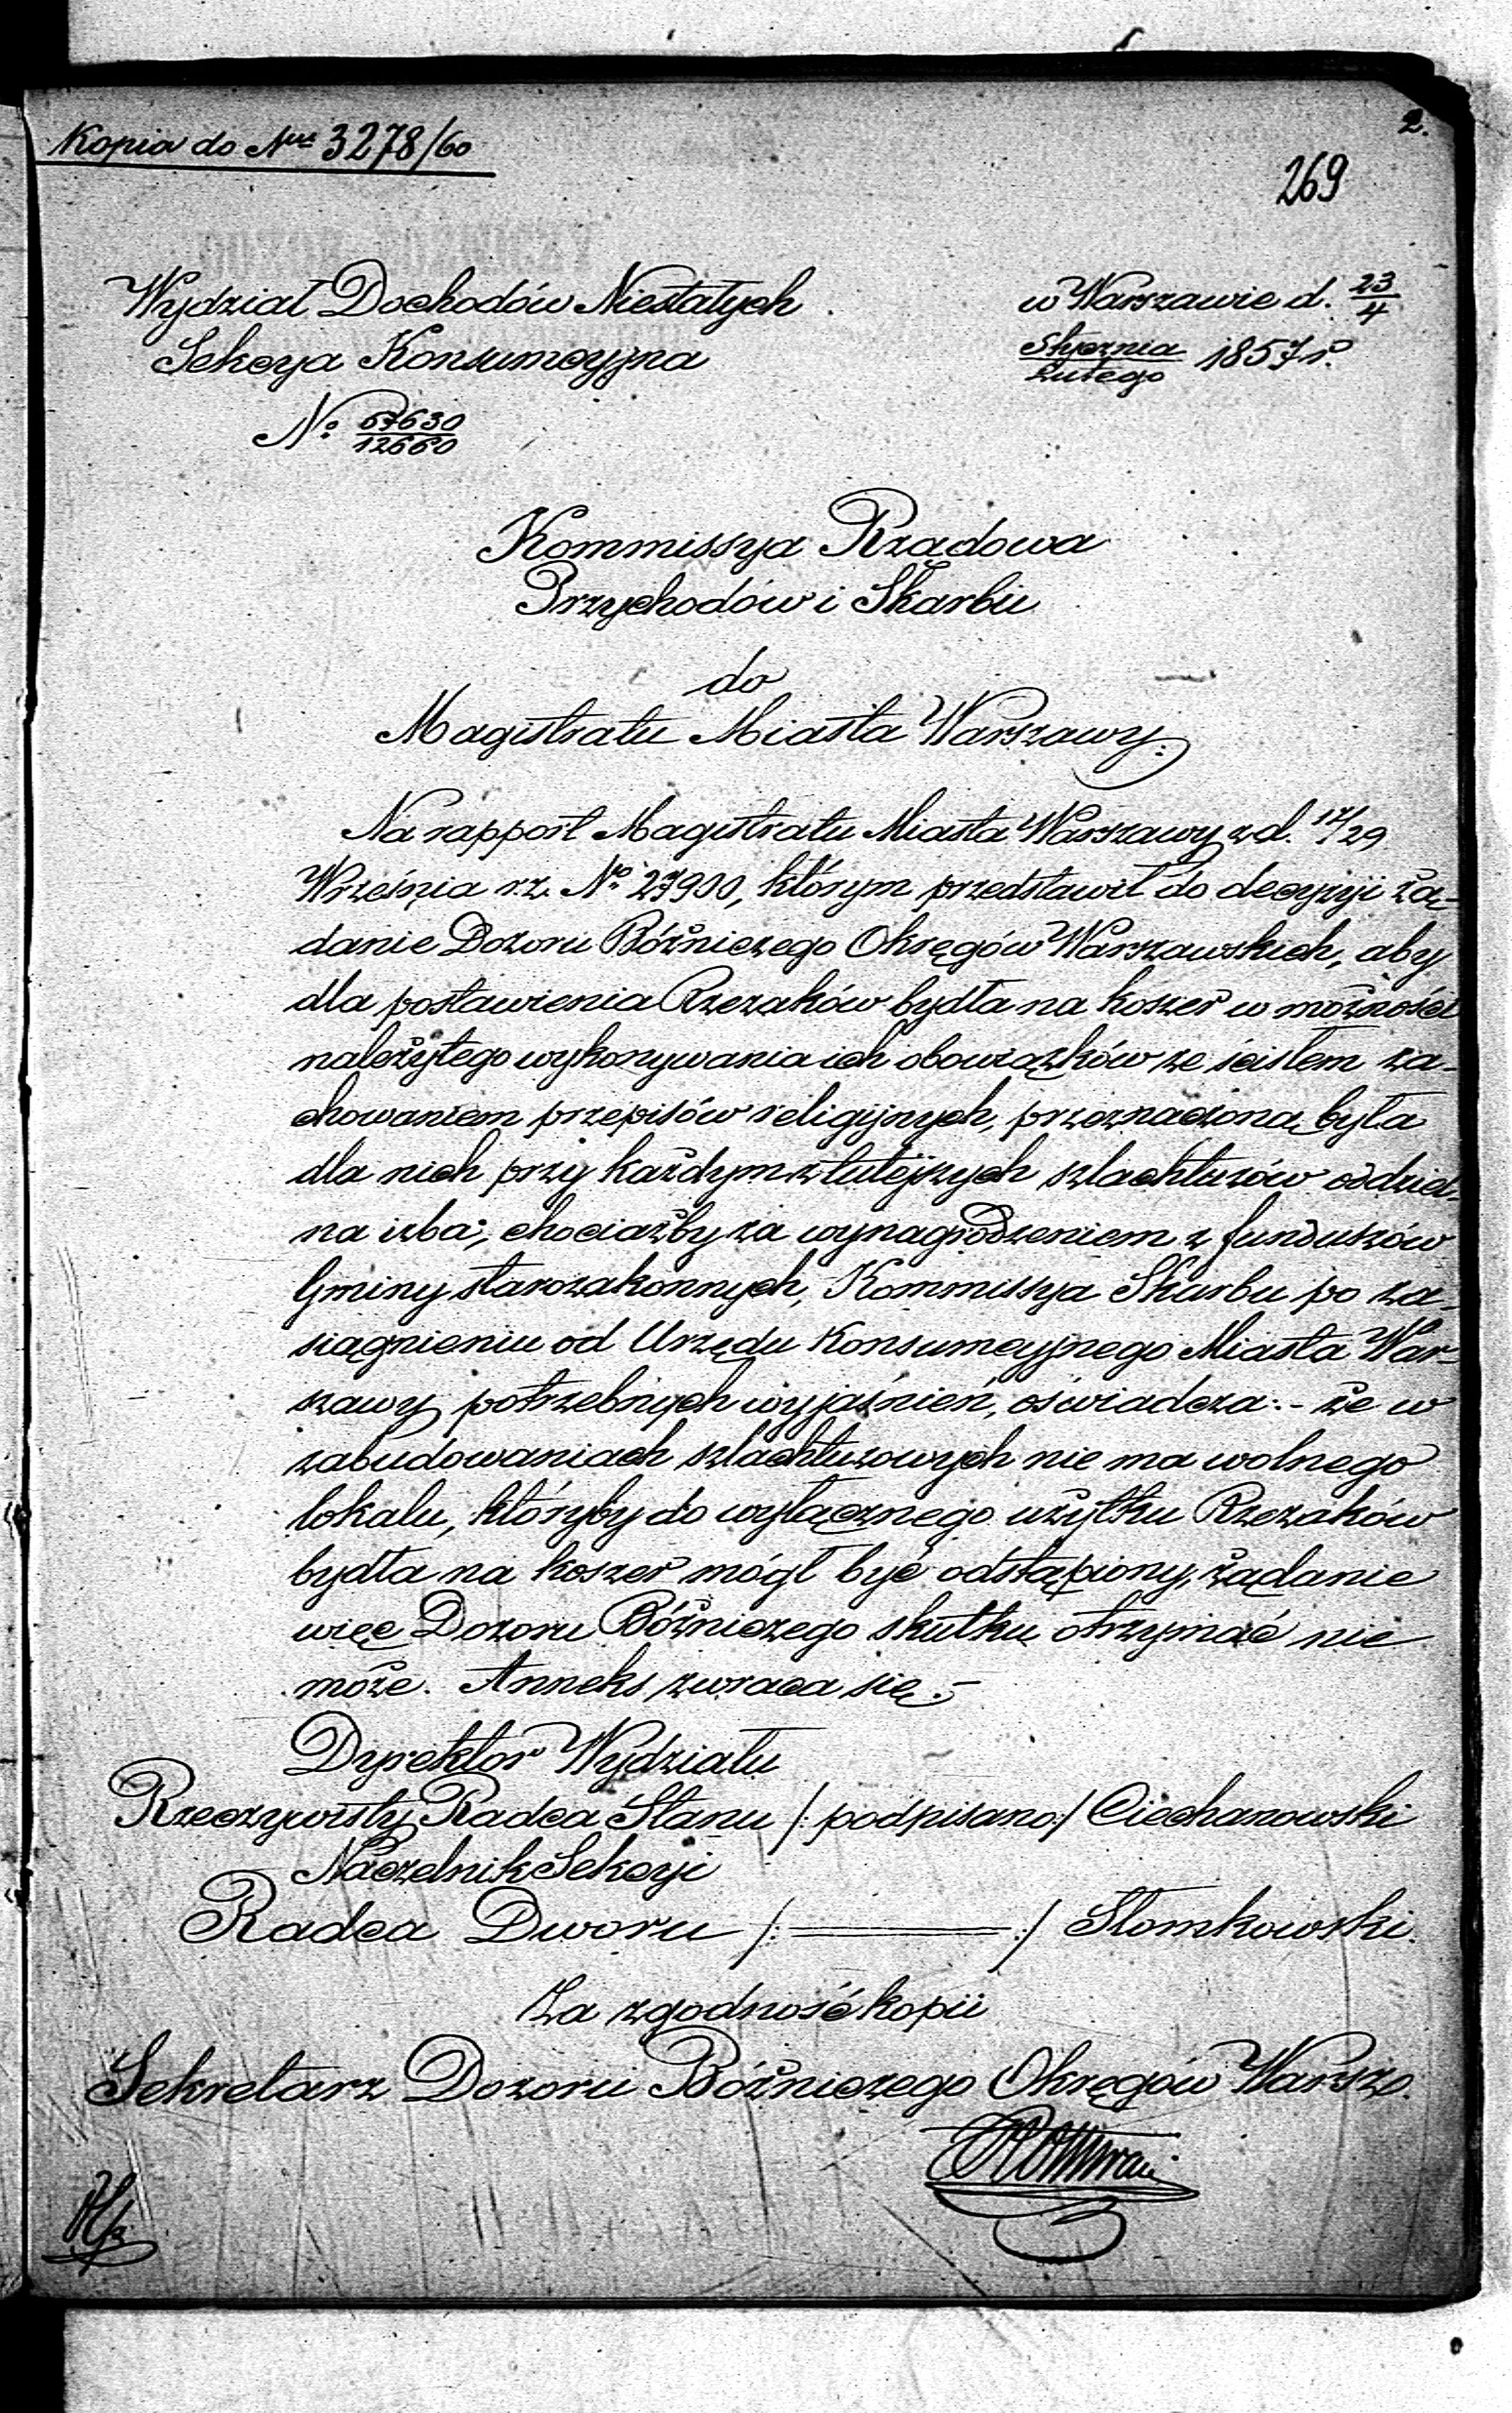 Kopia do Nru 3278/60
2.
269
Wydział Dochodów Niestałych
Sekcya Konsumcyjna
No 67630/12660
w Warszawie d. 23/4
Stycznia/Lutego 1857 r.
Kommissya Rządowa
Przychodów i Skarbu
do
Magistratu Miasta Warszawy.
Na rapport Magistratu Miasta Warszawy z d. 17/29
Września r. z. No 27900, którym przedstawił do decyzyi żą-
danie Dozoru Bóżniczego Okręgów Warszawskich, aby
dla postawienia Rzezaków bydła na koszer w możności
należytego wykonywania ich obowiązków ze ścisłem za-
chowaniem przepisów religijnych, przeznaczona była
dla nich przy każdym z tutejszych szlachtuzów oddziel-
na izba, chociażby za wynagrodzeniem z funduszów
Gminy starozakonnych, Kommissya Skarbu po za-
siągnieniu od Urzędu Konsumcyjnego Miasta War-
szawy potrzebnych wyjaśnień, oświadcza:- że w
zabudowaniach szlachtuzowych nie ma wolnego
lokalu, któryby do wyłącznego użytku Rzezaków
bydła na koszer mógł być odstąpiony, żądanie
więc Dozoru Bóżniczego skutku otrzymać nie
może. Anneks zwraca się.-
Dyrektor Wydziału
Rzeczywisty Radca Stanu /: podpisano :/ Ciechanowski
Naczelnik Sekcyi
Radca Dworu /: ═══ :/ Słomkowski.
Za zgodność kopii
Sekretarz Dozoru Bóżniczego Okręgów Warsz.